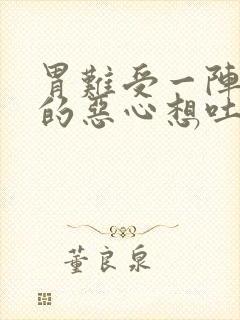 胃難受一陣
的惡心想吐
董良泉